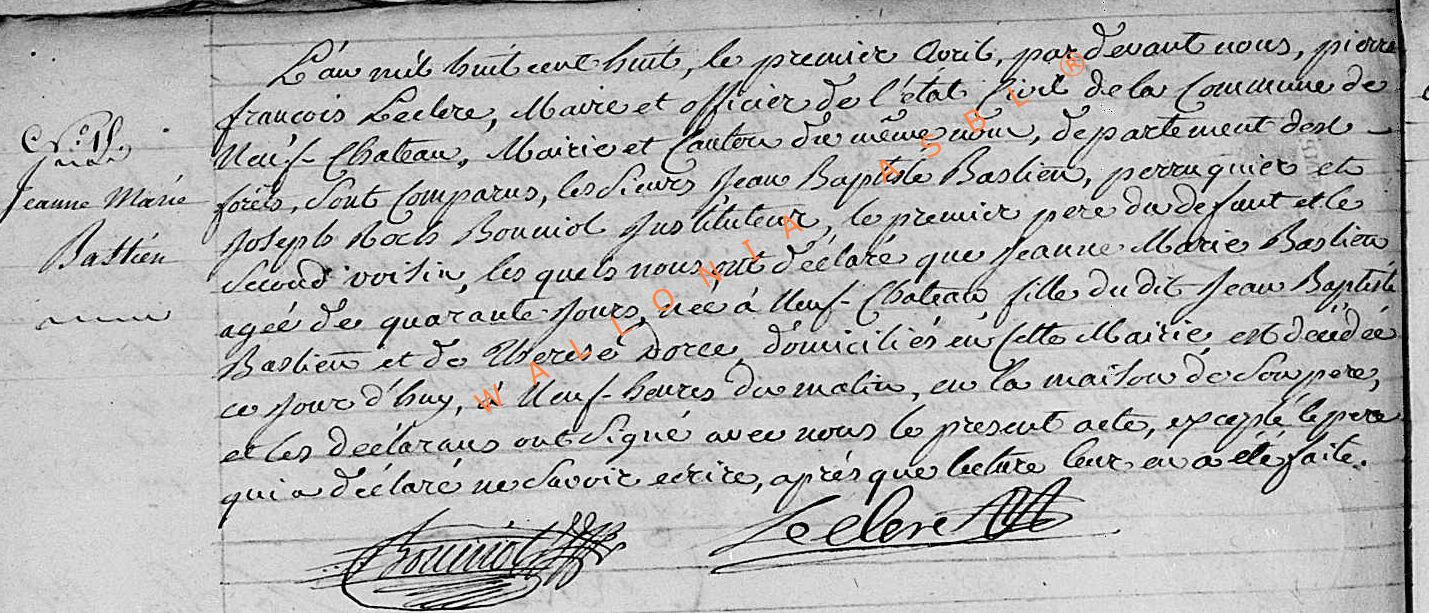 L'an mil huit cent huit, le premier avril, par devant nous, pierre
françois Leclerc, Maire et officier de l'état Civil de la Commune de
Neuf-Chateau, Mairie et Canton du même nom, departement des
forêts, sont Comparus, les Sieurs Jean Baptiste Bastien, perruquier et
Joseph Roch Bouniol Instituteur, le premier pere du defunt et le
Second voisin, les quels nous ont déclaré que Jeanne Marie Bastien
agée de quarante Jours, née à Neuf-Chateau fille du dit Jean Baptiste
Bastien et de Therese Dorce, domiciliés en Cette Mairie est décédée
ce Jour d'huy, à Neuf-heures du matin, en la maison de Son pere,
et les déclarans ont signé avec nous le present acte, excepté le pere
qui a déclaré ne Savoir ecrire, aprés que lecture leur en a été faite.
Jeanne Marie
Bastien
Bouniol
Leclerc
WALLONIA ASBL ®